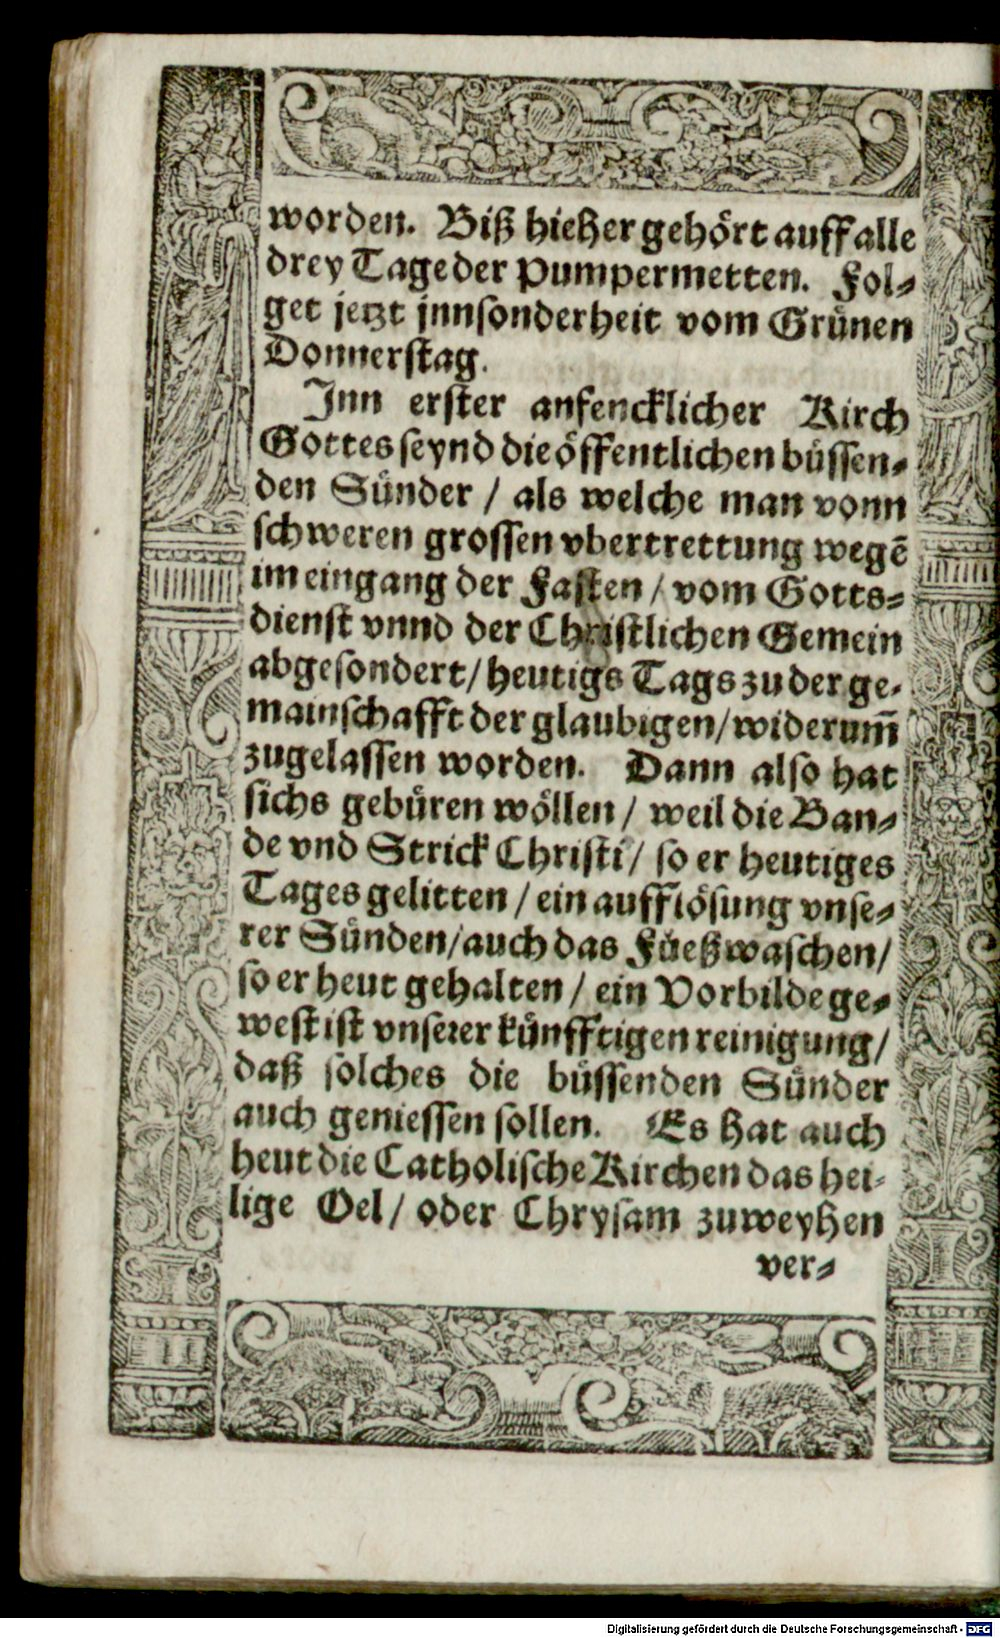 worden. Biß hieher gehört auff alle
drey Tage der Pumpermetten. Fol-
get jetzt jnnsonderheit vom Grünen
Donnerstag.
Jnn erster anfencklicher Kirch
Gottes seynd die öffentlichen büssen-
den Sünder / als welche man vonn
schweren grossen vbertrettung wegẽ
im eingang der Fasten / vom Gotts-
dienst vnnd der Christlichen Gemein
abgesondert / heutigs Tags zu der ge-
mainschafft der glaubigen / widerum̃
zugelassen worden. Dann also hat
sichs gebüren wöllen / weil die Ban-
de vnd Strick Christi / so er heutiges
Tages gelitten / ein aufflösung vnse-
rer Sünden / auch das Füeßwaschen /
so er heut gehalten / ein Vorbilde ge-
west ist vnserer künfftigen reinigung /
daß solches die büssenden Sünder
auch geniessen sollen. Es hat auch
heut die Catholische Kirchen das hei-
lige Oel / oder Chrysam zuweyhen
ver-
Digitalisierung gefördert durch die Deutsche Forschungsgemeinschaft - DFG